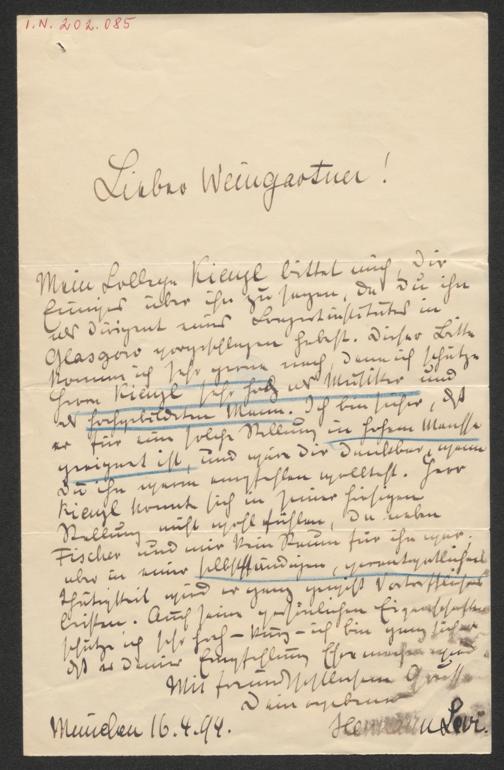 I.N. 202.085
Lieber Weingartner!
Mein College Kienzl bittet mich, Dir
Einiges über ihn zu sagen, da Du ihn
als Dirigent eines Concertinstitutes in
Glasgow vorgeschlagen habest. Dieser Bitte
komme ich sehr gerne nach, denn ich schätze
Herrn Kienzl sehr hoch als Musiker und
als hochgebildeten Mann. Ich bin sicher, daß
er für eine solche Stellung in hohem Maasse
geeignet ist, und wäre Dir dankbar, wenn
Du ihn warm empfehlen wolltest. Herr
Kienzl konnte sich in seiner hiesigen
Stellung nicht wohl fühlen, da neben
Fischer und mir kein Raum für ihn war,
aber in einer selbstständigen, verantwortlichen
Thätigkeit wird er ganz gewiß Vortreffliches
leisten. Auch seine persönlichen Eigenschaften
schätze ich sehr hoch – kurz – ich bin ganz sicher
daß er Deiner Empfehlung Ehre machen wird.
Mit freundschaftlichem Grusse
Dein ergebener
München 16.4.94. Hermann Levi.